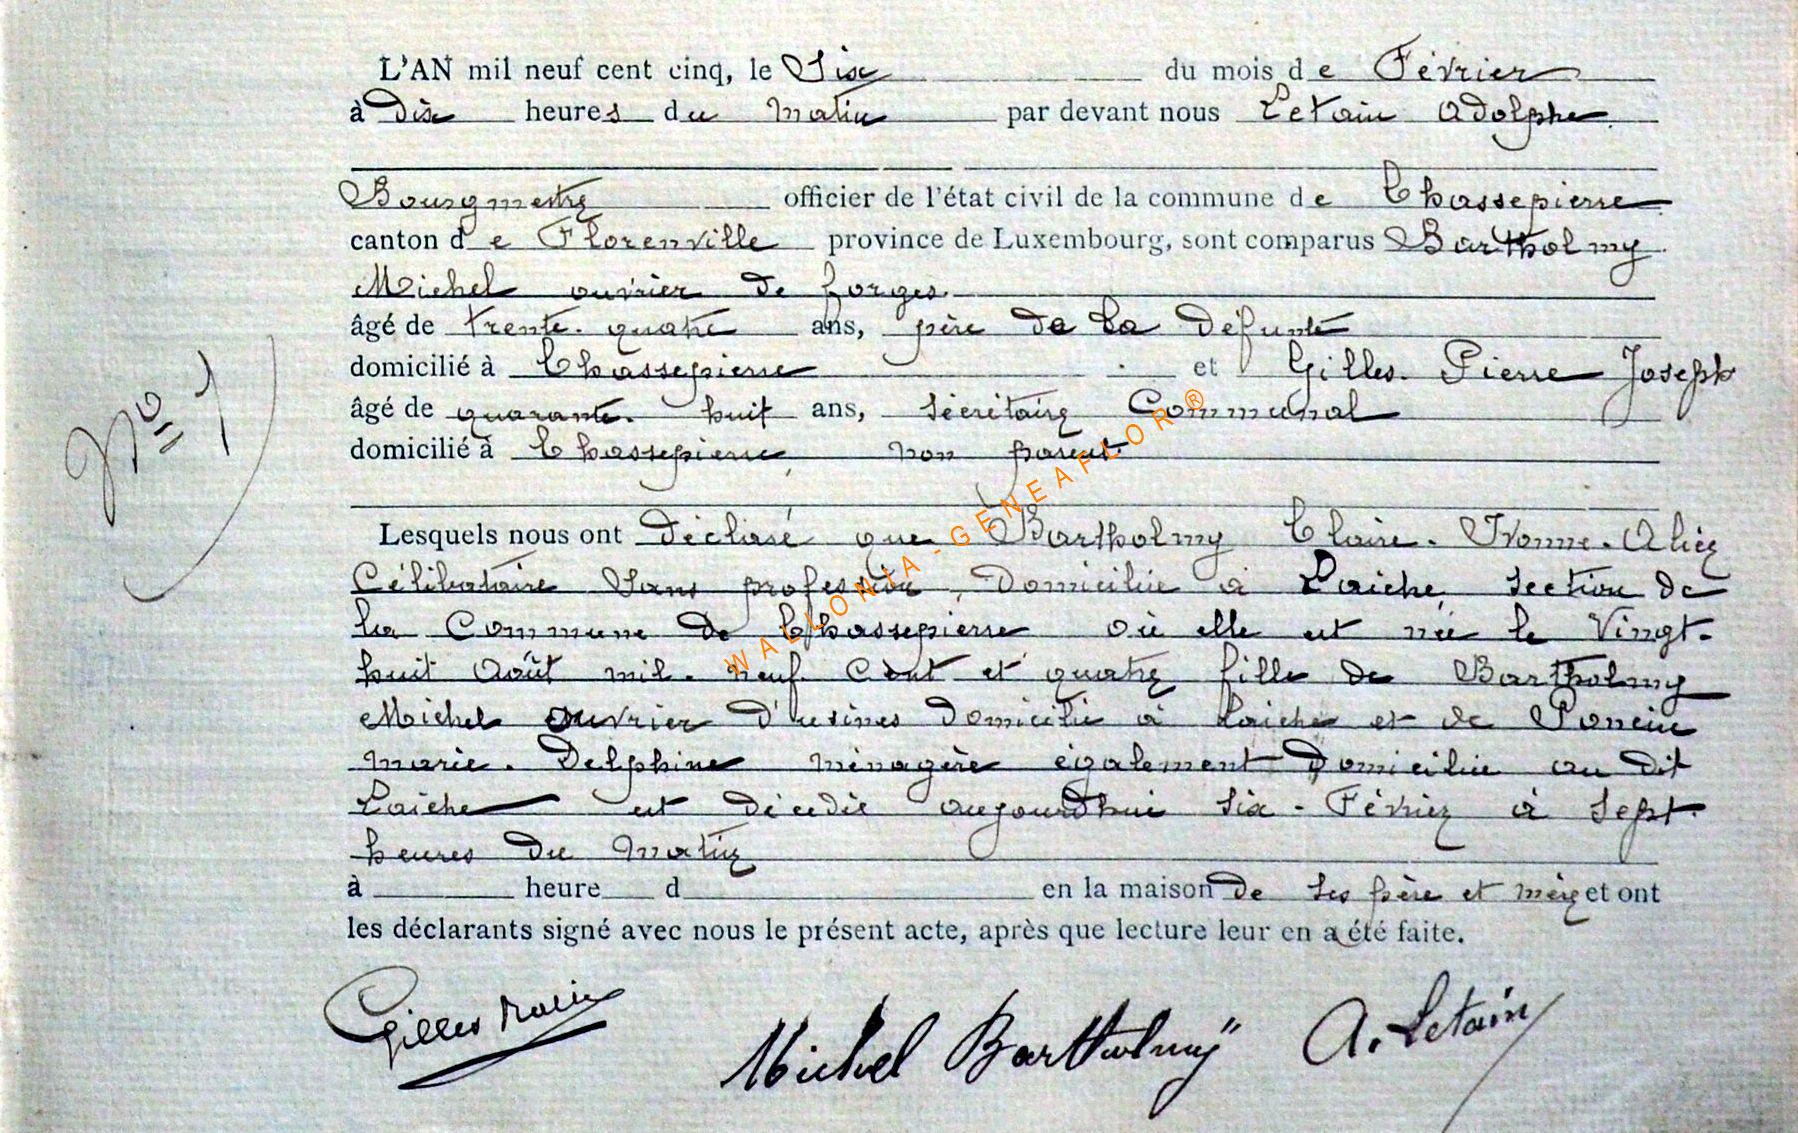 L'AN mil neuf cent cinq, le Six du mois de Février
à Dix heures du Matin par devant nous Letain Adolphe
Bourgmestre officier de l'état civil de la commune de Chassepierre
canton de Florenville province de Luxembourg, sont comparus Bartholmy
Michel ouvrier de forges.
âgé de trente-quatre ans, père de la Défunte
domicilié à Chassepierre et Gilles Pierre Joseph
âgé de quarante-huit ans, sécrétaire Communal
domicilié à Chassepierre, non parent
Lesquels nous ont déclaré que Bartholmy Claire-Yvonne-Alice
Célibataire Sans profession, Domiciliée à Laiche, section de
la Commune de Chassepierre où elle est née le Vingt-
huit Août mil-neuf Cent et quatre fille de Bartholmy
Michel ouvrier d'usines domicilié à Laiche et de Poncin
Marie-Delphine ménagère également Domiciliée au dit
Laiche est décédée aujourd'hui six-Février à sept
heures du Matin
à heure d en la maison de ses père et mère et ont
les déclarants signé avec nous le présent acte, après que lecture leur en a été faite.
Gilles
Michel Bartholmy
A. Letain
No 1
WALLONIA-GENEAFLOR ®